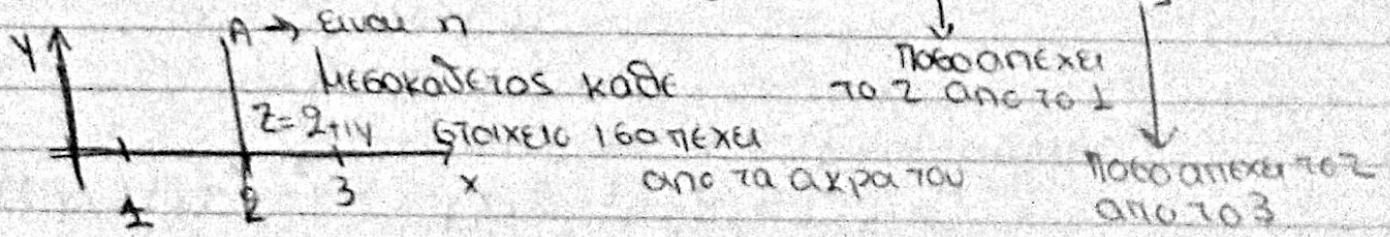 Y A → Ειναι η
μεσοκαθετος καθε
Ζ=2+iy στοιχειο ισαπεχει
απο τα ακρα του
1 2 3 x
Ποσο απεχει
το Ζ απο το 1
Ποσο απεχει το Ζ
απο το 3